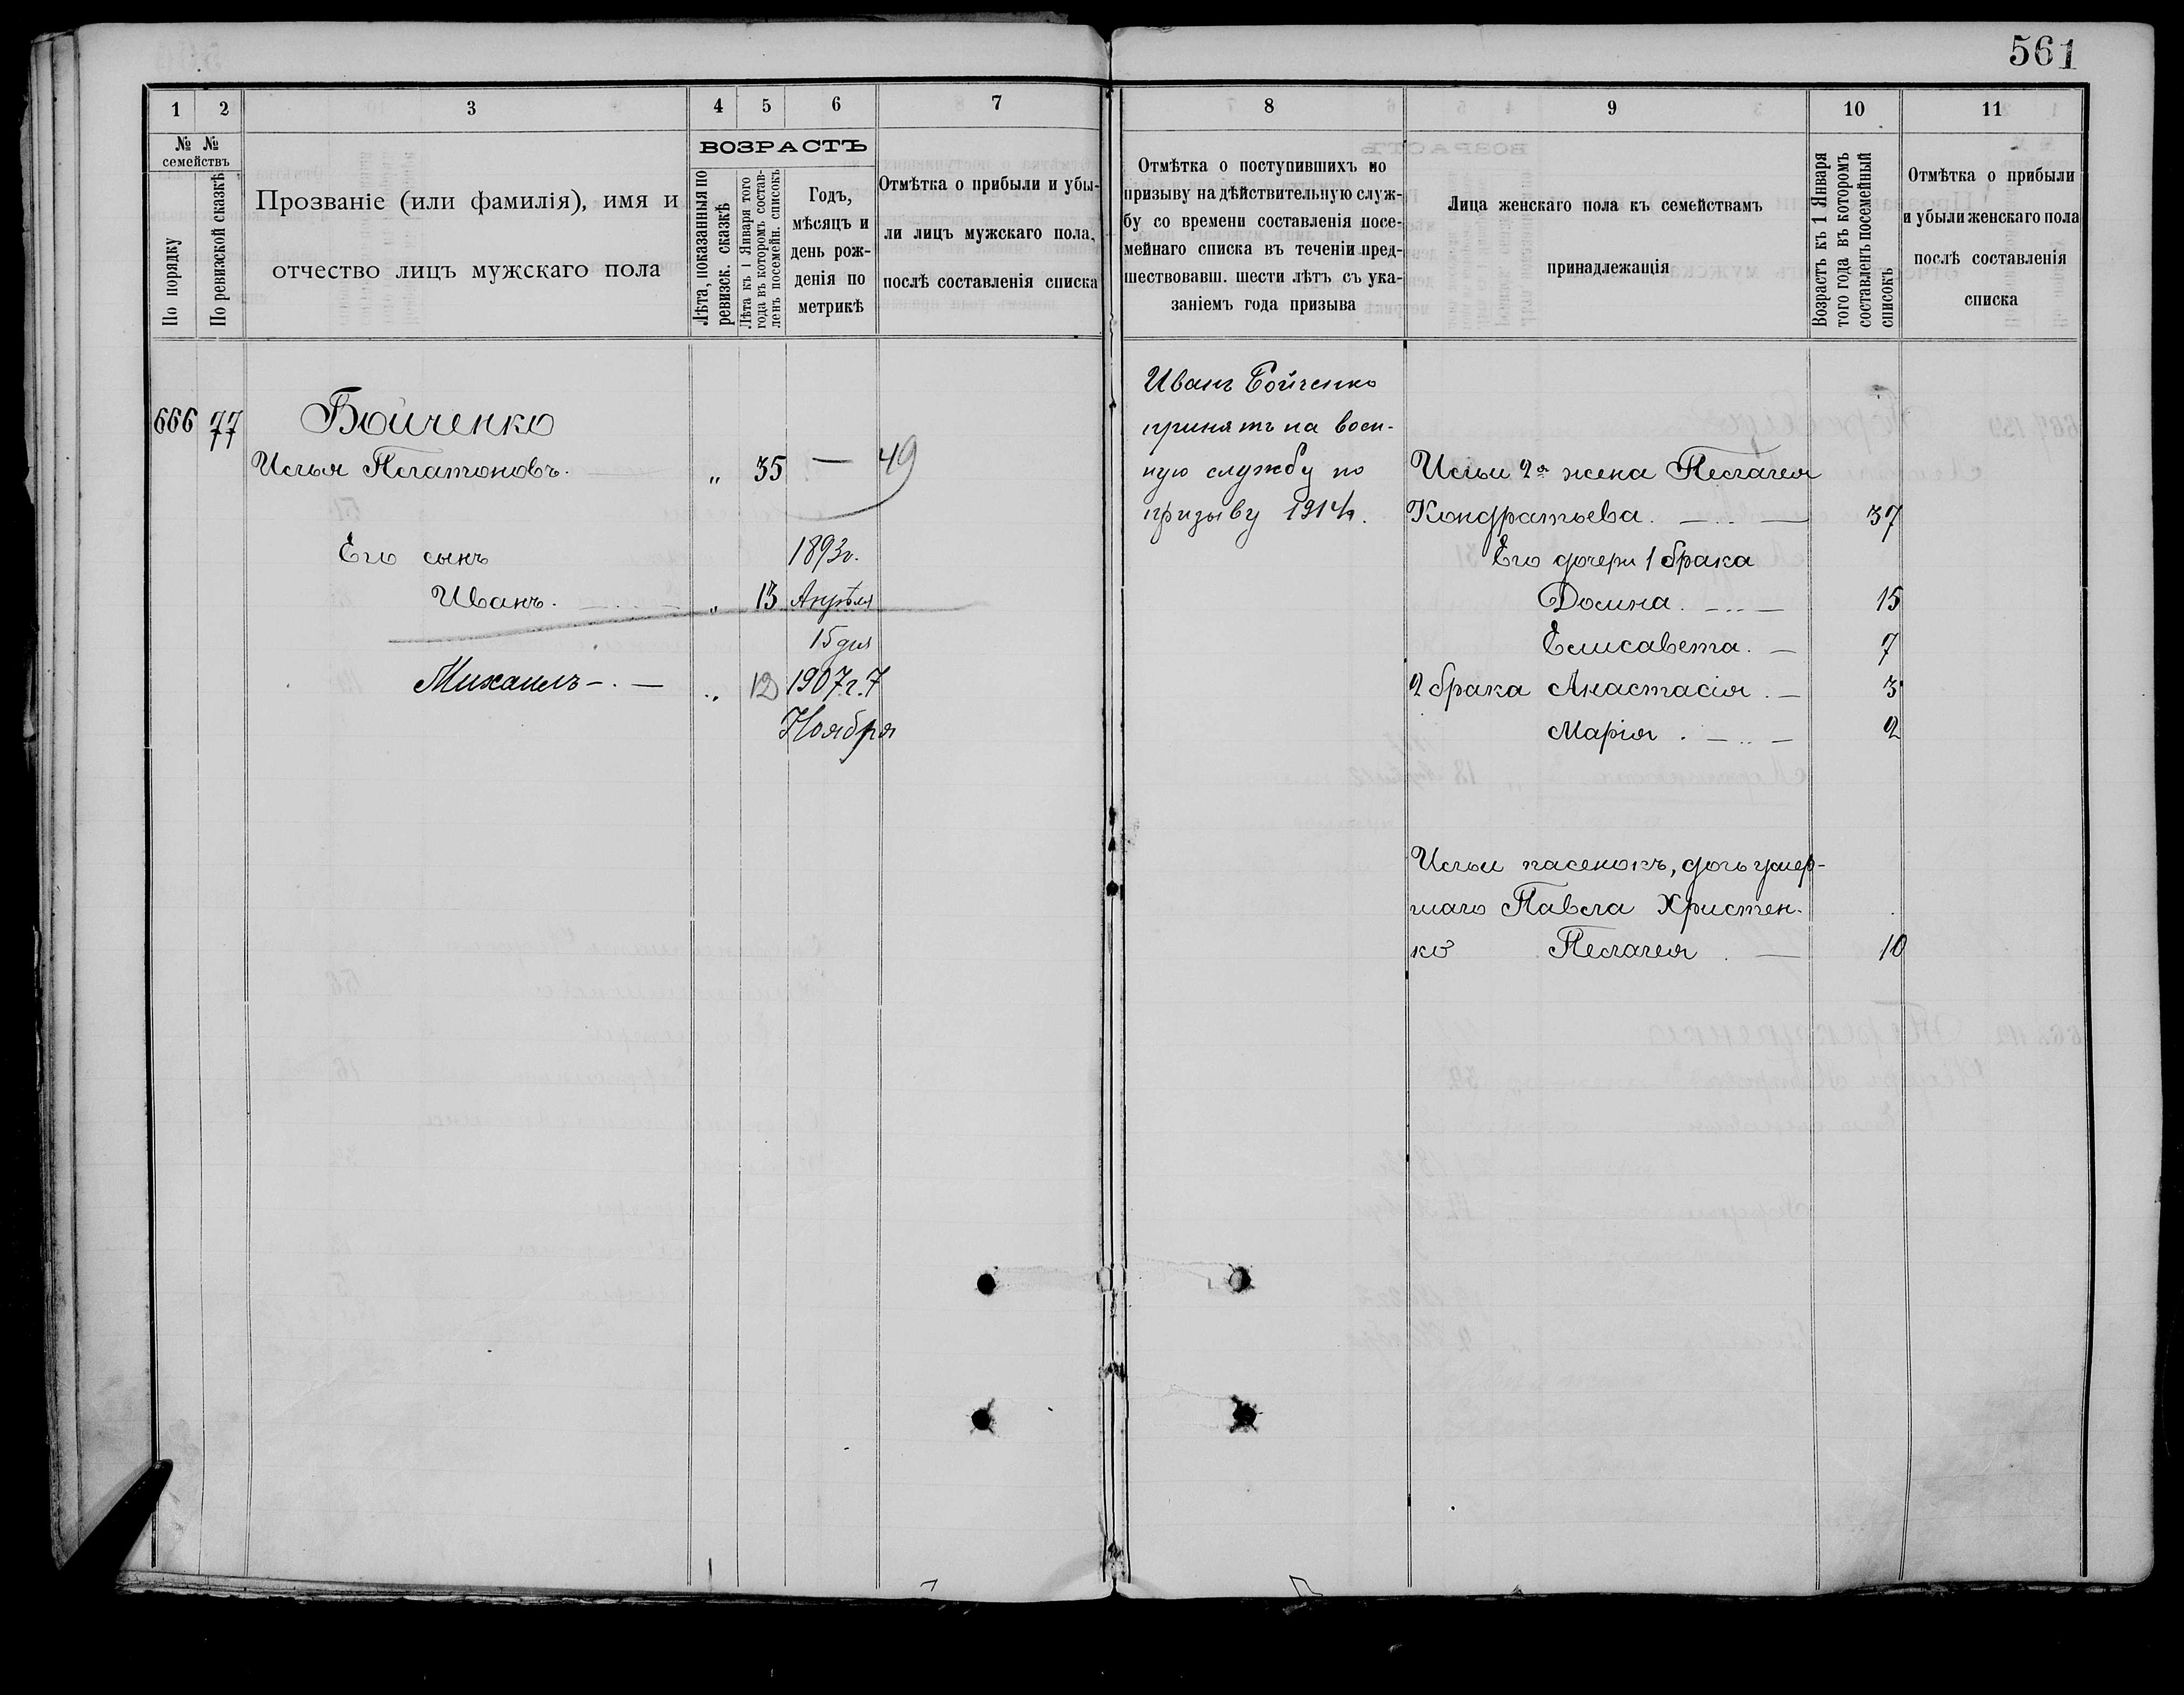 561
1 2 3 4 5 6 7
№ № семействъ
По порядку
По ревизской сказкѣ
Прозваніе (или фамилія), имя и
отчество лицъ мужскаго пола
ВОЗРАСТЪ
Лѣта, показанныя по
ревизск. сказкѣ
Лѣта къ 1 Января того
года въ которомъ состав-
ленъ посемейн. списокъ
Годъ,
мѣсяцъ и
день рож-
денія по
метрикѣ
Отмѣтка о прибыли и убы-
ли лицъ мужскаго пола,
послѣ составленія списка
666 77 Бойченко
Илья Платоновъ. „ 35 — 49
Его сынъ 1893г.
Иванъ. „ 13 Апрѣля
15 дня
Михаилъ „ 12 1907.г.7
Ноября
8 9 10 11
Отмѣтка о поступившихъ по
призыву на дѣйствительную служ-
бу со времени составленія посе-
мейнаго списка въ теченіи пред-
шествовавш. шести лѣтъ съ ука-
заніемъ года призыва
Лица женскаго пола къ семействамъ
принадлежащія
Возрастъ къ 1 Января
того года въ которомъ
составленъ посемейный
списокъ
Отмѣтка о прибыли
и убыли женскаго пола
послѣ составленія
списка
Иванъ Бойченко
принятъ на воен-
ную службу по
призыву 1914г.
Ильи 2я жена Пелагея
Кондратьева. 37
Его дочери 1 брака
Домна. 15
Елисавета. 7
2 брака Анастасія. 3
Марія. 2
Ильи пасенокъ, дочь умер-
шаго Павла Христен-
ко Пелагея 10